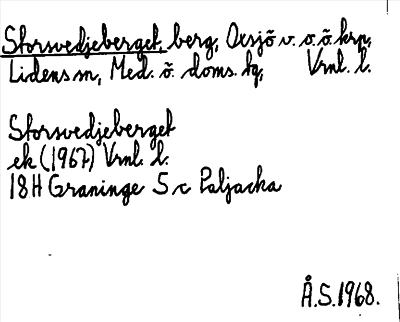 Storsvedjeberget, berg, Oxsjö v. o. ö. krp,
Lidens sn, Med. ö. doms. tg, Vrnl. l.
Storsvedjeberget
ek (1967) Vrnl. l.
18H Graninge 5 c Paljacka
Å.S. 1968.